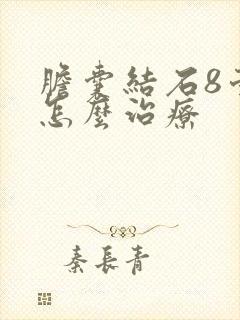 膽囊結石8
怎麼治療
秦長青